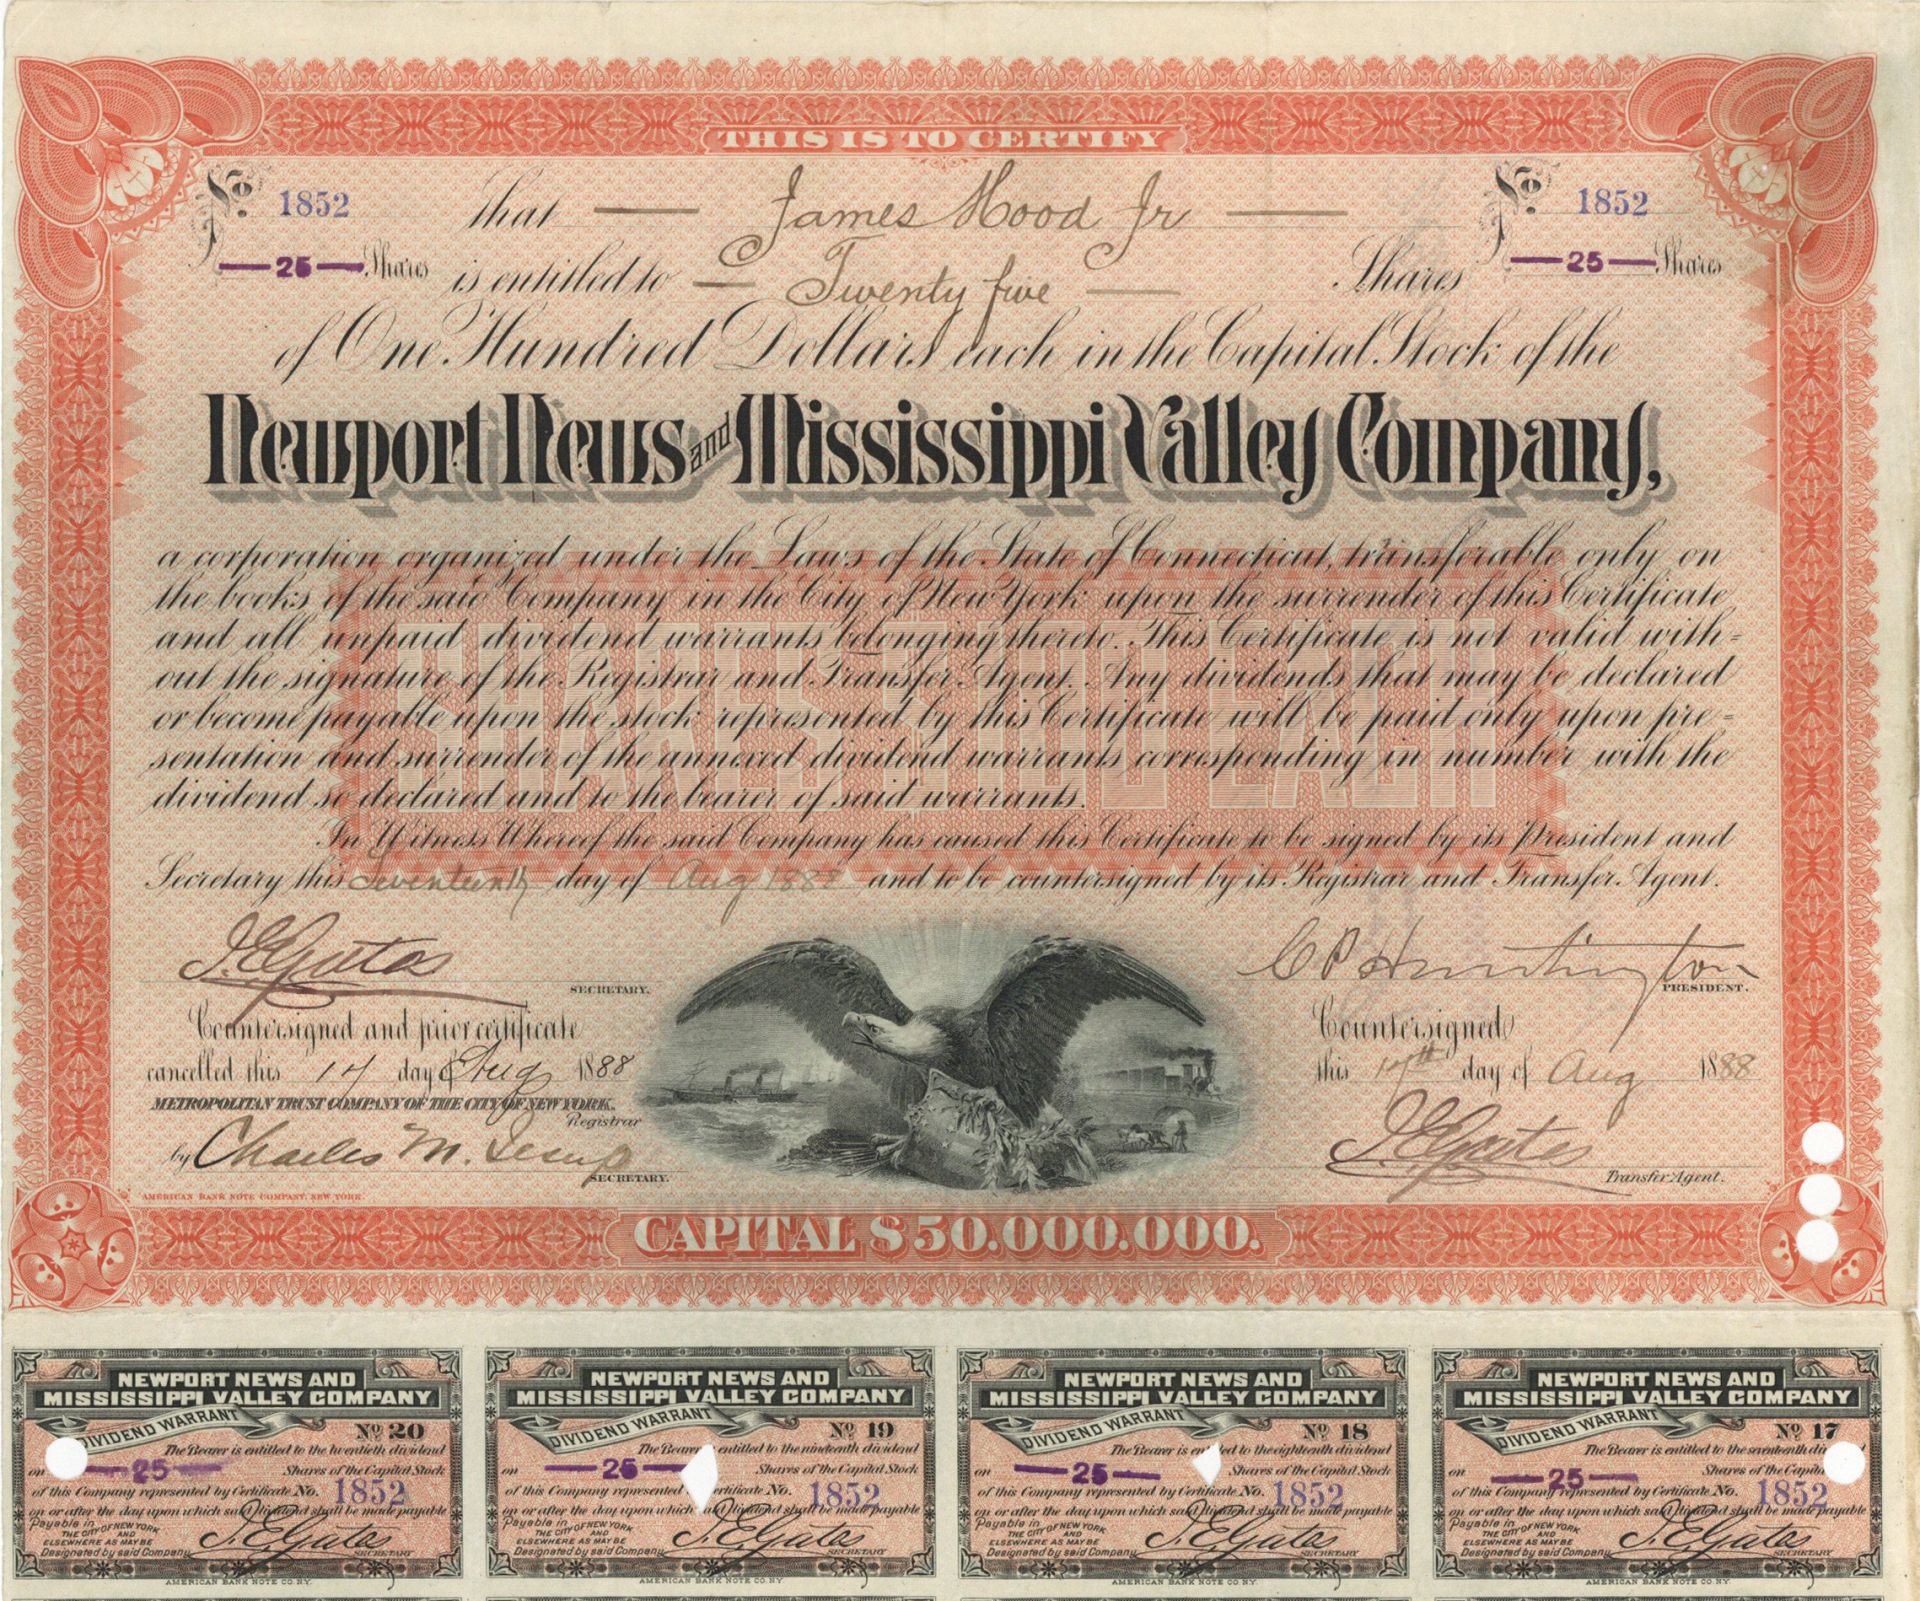 THIS IS TO CERTIFY
No. 1852 That James Hood Jr No. 1852
25 Shares is entitled to Twenty five Shares 25 Shares
of One Hundred Dollars each in the Capital Stock of the
Newport News and Mississippi Valley Company,
a corporation organized under the Laws of the State of Connecticut, transferable only on
the books of the said Company in the City of New York upon the surrender of this Certificate
and all unpaid dividend warrants belonging thereto. This Certificate is not valid with=
out the signature of the Registrar and Transfer Agent. Any dividends that may be declared
or become payable upon the stock represented by this Certificate will be paid only upon pre=
sentation and surrender of the annexed dividend warrants corresponding in number with the
dividend so declared and to the bearer of said warrants.
SHARES $100 EACH
In Witness Whereof the said Company has caused this Certificate to be signed by its President and
Secretary this Seventeenth day of Aug 1888 and to be countersigned by its Registrar and Transfer Agent.
I. E. Gates
SECRETARY.
C P Huntington
PRESIDENT.
Countersigned and prior certificate
cancelled this 17 day of Aug 1888
METROPOLITAN TRUST COMPANY OF THE CITY OF NEW YORK.
Registrar
by Charles M. Jesup
SECRETARY.
Countersigned
this 17th day of Aug 1888
I. E. Gates
Transfer Agent.
AMERICAN BANK NOTE COMPANY, NEW YORK.
CAPITAL $50.000.000.
NEWPORT NEWS AND
MISSISSIPPI VALLEY COMPANY
DIVIDEND WARRANT
No 20
The Bearer is entitled to the twentieth dividend
on 25 Shares of the Capital Stock
of this Company represented by Certificate No. 1852
on or after the day upon which said dividend shall be made payable
Payable in
THE CITY OF NEW YORK
AND
ELSEWHERE AS MAY BE
Designated by said Company
I. E. Gates
SECRETARY
AMERICAN BANK NOTE CO. N.Y.
NEWPORT NEWS AND
MISSISSIPPI VALLEY COMPANY
DIVIDEND WARRANT
No 19
The Bearer entitled to the nineteenth dividend
on 25 Shares of the Capital Stock
of this Company represented Certificate No. 1852
on or after the day upon which said dividend shall be made payable
Payable in
THE CITY OF NEW YORK
AND
ELSEWHERE AS MAY BE
Designated by said Company
I. E. Gates
SECRETARY
AMERICAN BANK NOTE CO. N.Y.
NEWPORT NEWS AND
MISSISSIPPI VALLEY COMPANY
DIVIDEND WARRANT
No 18
The Bearer is entitled to the eighteenth dividend
on 25 Shares of the Capital Stock
of this Company represented by Certificate No. 1852
on or after the day upon which said dividend shall be made payable
Payable in
THE CITY OF NEW YORK
AND
ELSEWHERE AS MAY BE
Designated by said Company
I. E. Gates
SECRETARY
AMERICAN BANK NOTE CO. N.Y.
NEWPORT NEWS AND
MISSISSIPPI VALLEY COMPANY
DIVIDEND WARRANT
No 17
The Bearer is entitled to the seventeenth dividend
on 25 Shares of the Capital
of this Company represented by Certificate No. 1852
on or after the day upon which said dividend shall be made payable
Payable in
THE CITY OF NEW YORK
AND
ELSEWHERE AS MAY BE
Designated by said Company
I. E. Gates
SECRETARY
AMERICAN BANK NOTE CO. N.Y.